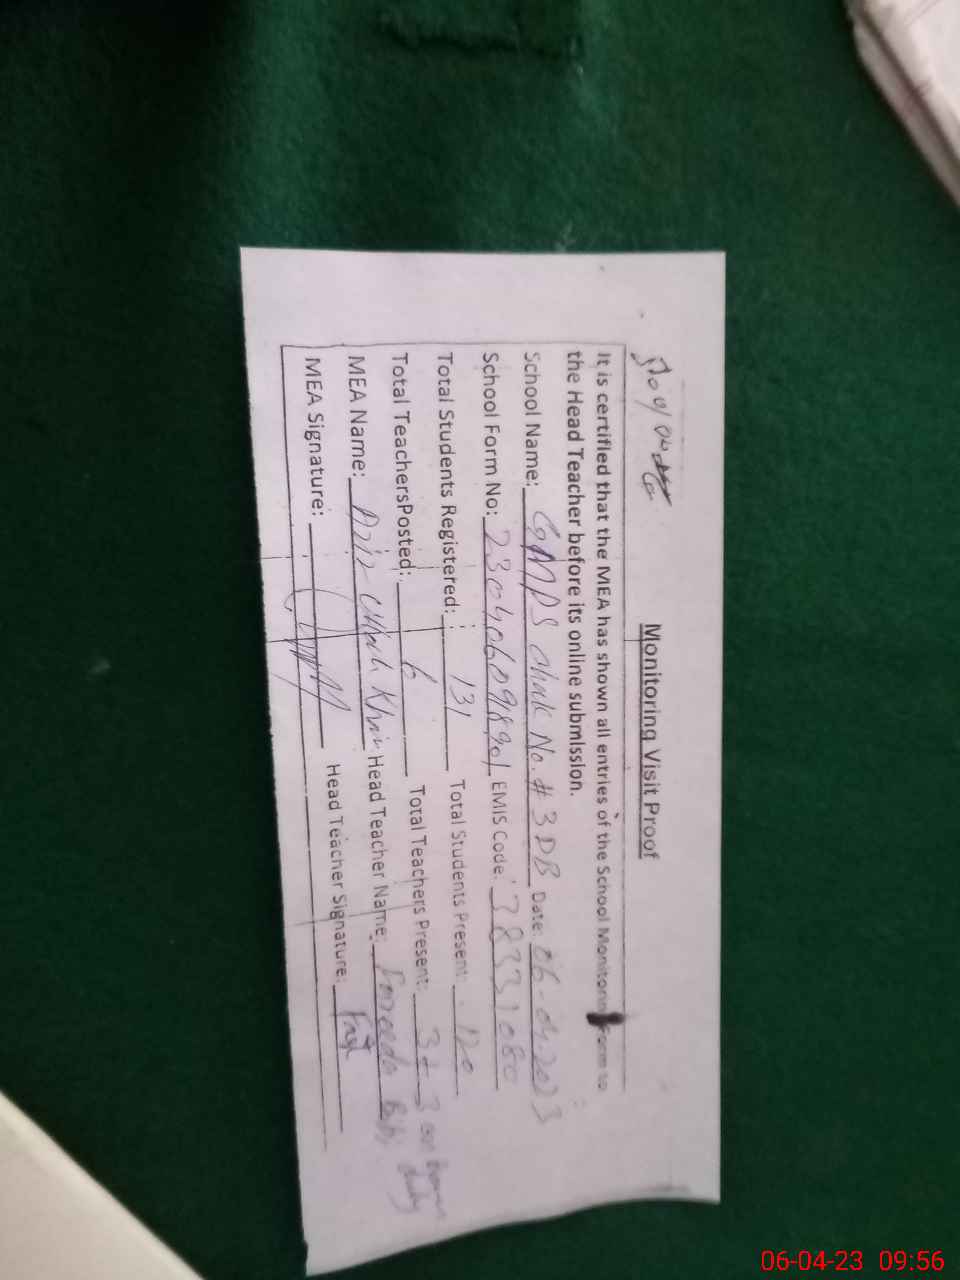 Monitoring Visit Proof
It is certified that the MEA has shown all entries of the School Monitoring Form to
the Head Teacher before its online submission.
School Name: GMPS Chak No. # 3 DB Date: 06-04-2023
School Form No: EMIS Code: 38331080
Total Students Registered: 131 Total Students Present: 120
Total TeachersPosted: 6 Total Teachers Present: 3 + 3 on duty
MEA Name: Khan Head Teacher Name: Bibi
MEA Signature: Head Teacher Signature:
06-04-23 09:56